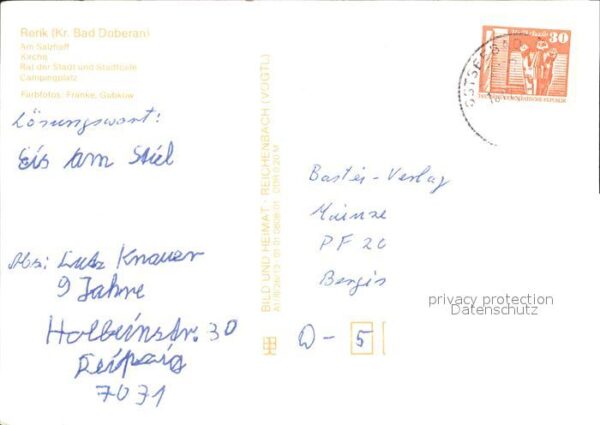 Rerik (Kr. Bad Doberan)
Am Salzhaff
Kirche
Rat der Stadt und Stadthalle
Campingplatz
Farbfotos: Franke, Gubkow
Lösungswort:
Eis am Stiel
Abs: Lutz Knauer
9 Jahre
Holbeinstr. 30
Leipzig
7031
BILD UND HEIMAT · REICHENBACH (VOGTL)
OSTSEEBAD
30
DEUTSCHE DEMOKRATISCHE REPUBLIK
Bastei-Verlag
Münze
PF 20
Bergis
D - 5
privacy protection
Datenschutz